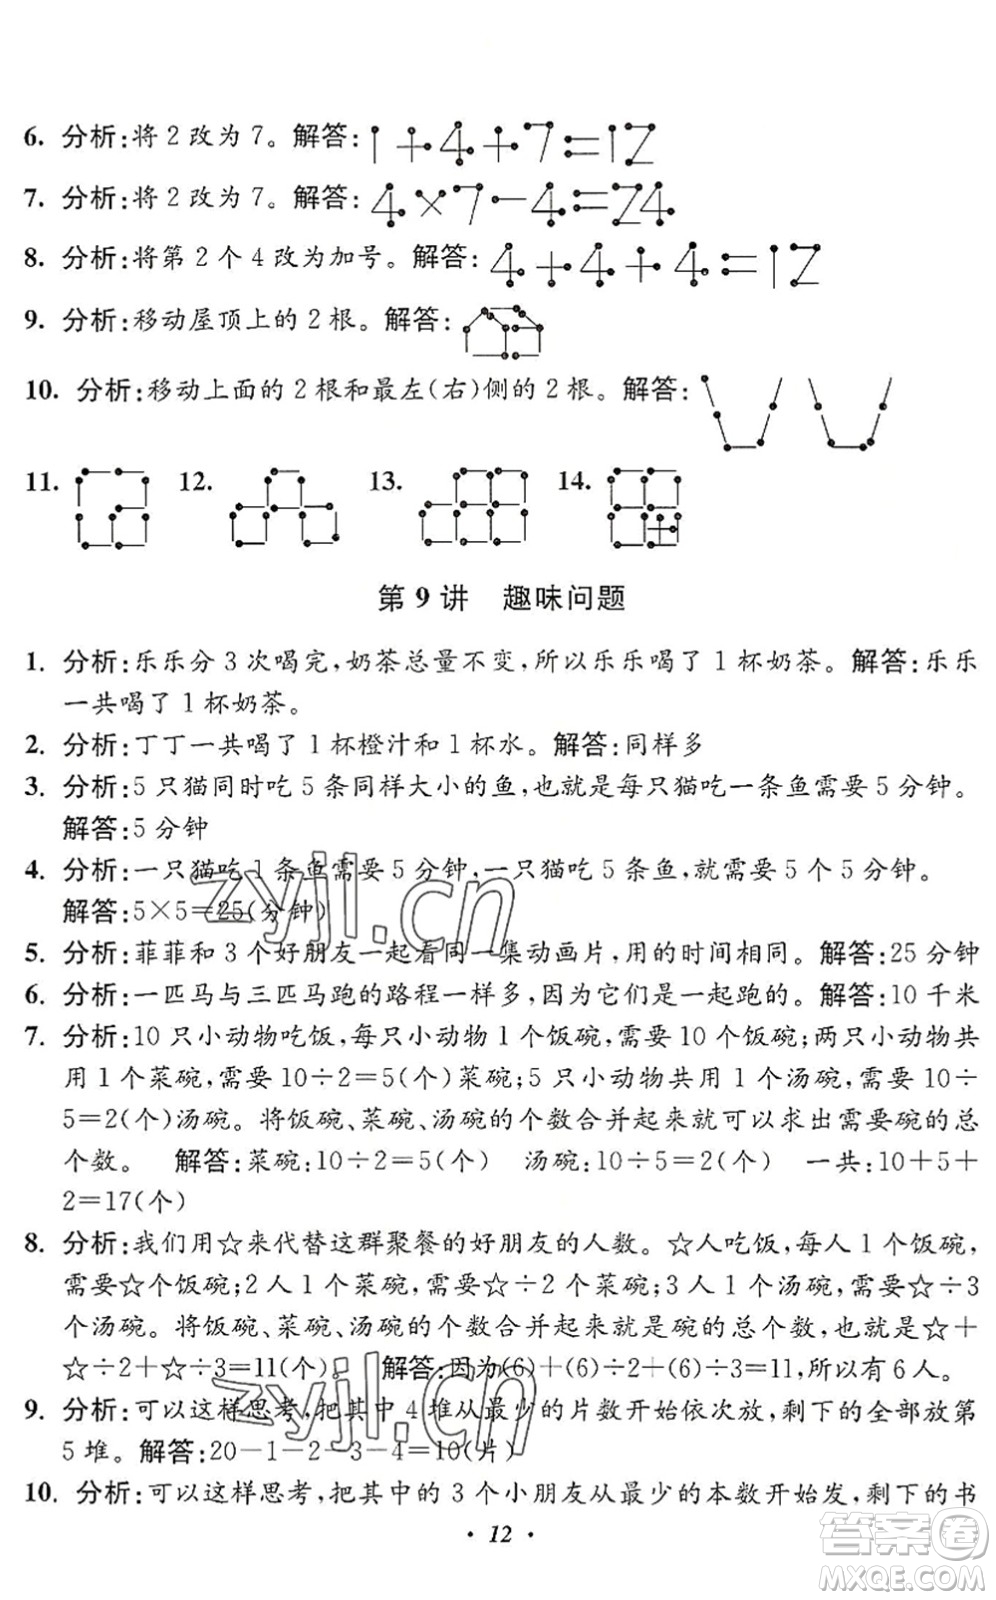 6. 分析:将 2 改为 7。解答:1+4+7=12
7. 分析:将 2 改为 7。解答:4×7-4=24
8. 分析:将第 2 个 4 改为加号。解答:4+4+4=12
9. 分析:移动屋顶上的 2 根。解答:
10. 分析:移动上面的 2 根和最左(右)侧的 2 根。解答:
11. 12. 13. 14.
第 9 讲 趣味问题
1. 分析:乐乐分 3 次喝完,奶茶总量不变,所以乐乐喝了 1 杯奶茶。解答:乐乐
一共喝了 1 杯奶茶。
2. 分析:丁丁一共喝了 1 杯橙汁和 1 杯水。解答:同样多
3. 分析:5 只猫同时吃 5 条同样大小的鱼,也就是每只猫吃一条鱼需要 5 分钟。
解答:5 分钟
4. 分析:一只猫吃 1 条鱼需要 5 分钟,一只猫吃 5 条鱼,就需要 5 个 5 分钟。
解答:5×5=25(分钟)
5. 分析:菲菲和 3 个好朋友一起看同一集动画片,用的时间相同。解答:25 分钟
6. 分析:一匹马与三匹马跑的路程一样多,因为它们是一起跑的。解答:10 千米
7. 分析:10 只小动物吃饭,每只小动物 1 个饭碗,需要 10 个饭碗;两只小动物共
用 1 个菜碗,需要 10÷2=5(个)菜碗;5 只小动物共用 1 个汤碗,需要 10÷
5=2(个)汤碗。将饭碗、菜碗、汤碗的个数合并起来就可以求出需要碗的总
个数。 解答:菜碗:10÷2=5(个) 汤碗:10÷5=2(个) 一共:10+5+
2=17(个)
8. 分析:我们用☆来代替这群聚餐的好朋友的人数。☆人吃饭,每人 1 个饭碗,
需要☆个饭碗;2 人 1 个菜碗,需要☆÷2 个菜碗;3 人 1 个汤碗,需要☆÷3
个汤碗。将饭碗、菜碗、汤碗的个数合并起来就是碗的总个数,也就是☆+
☆÷2+☆÷3=11(个)。 解答:因为(6)+(6)÷2+(6)÷3=11,所以有 6 人。
9. 分析:可以这样思考,把其中 4 堆从最少的片数开始依次放,剩下的全部放第
5 堆。解答:20-1-2-3-4=10(片)
10. 分析:可以这样思考,把其中的 3 个小朋友从最少的本数开始发,剩下的书
· 12 ·
zyjl.cn
zyjl.cn
答案圈
MXQE.COM